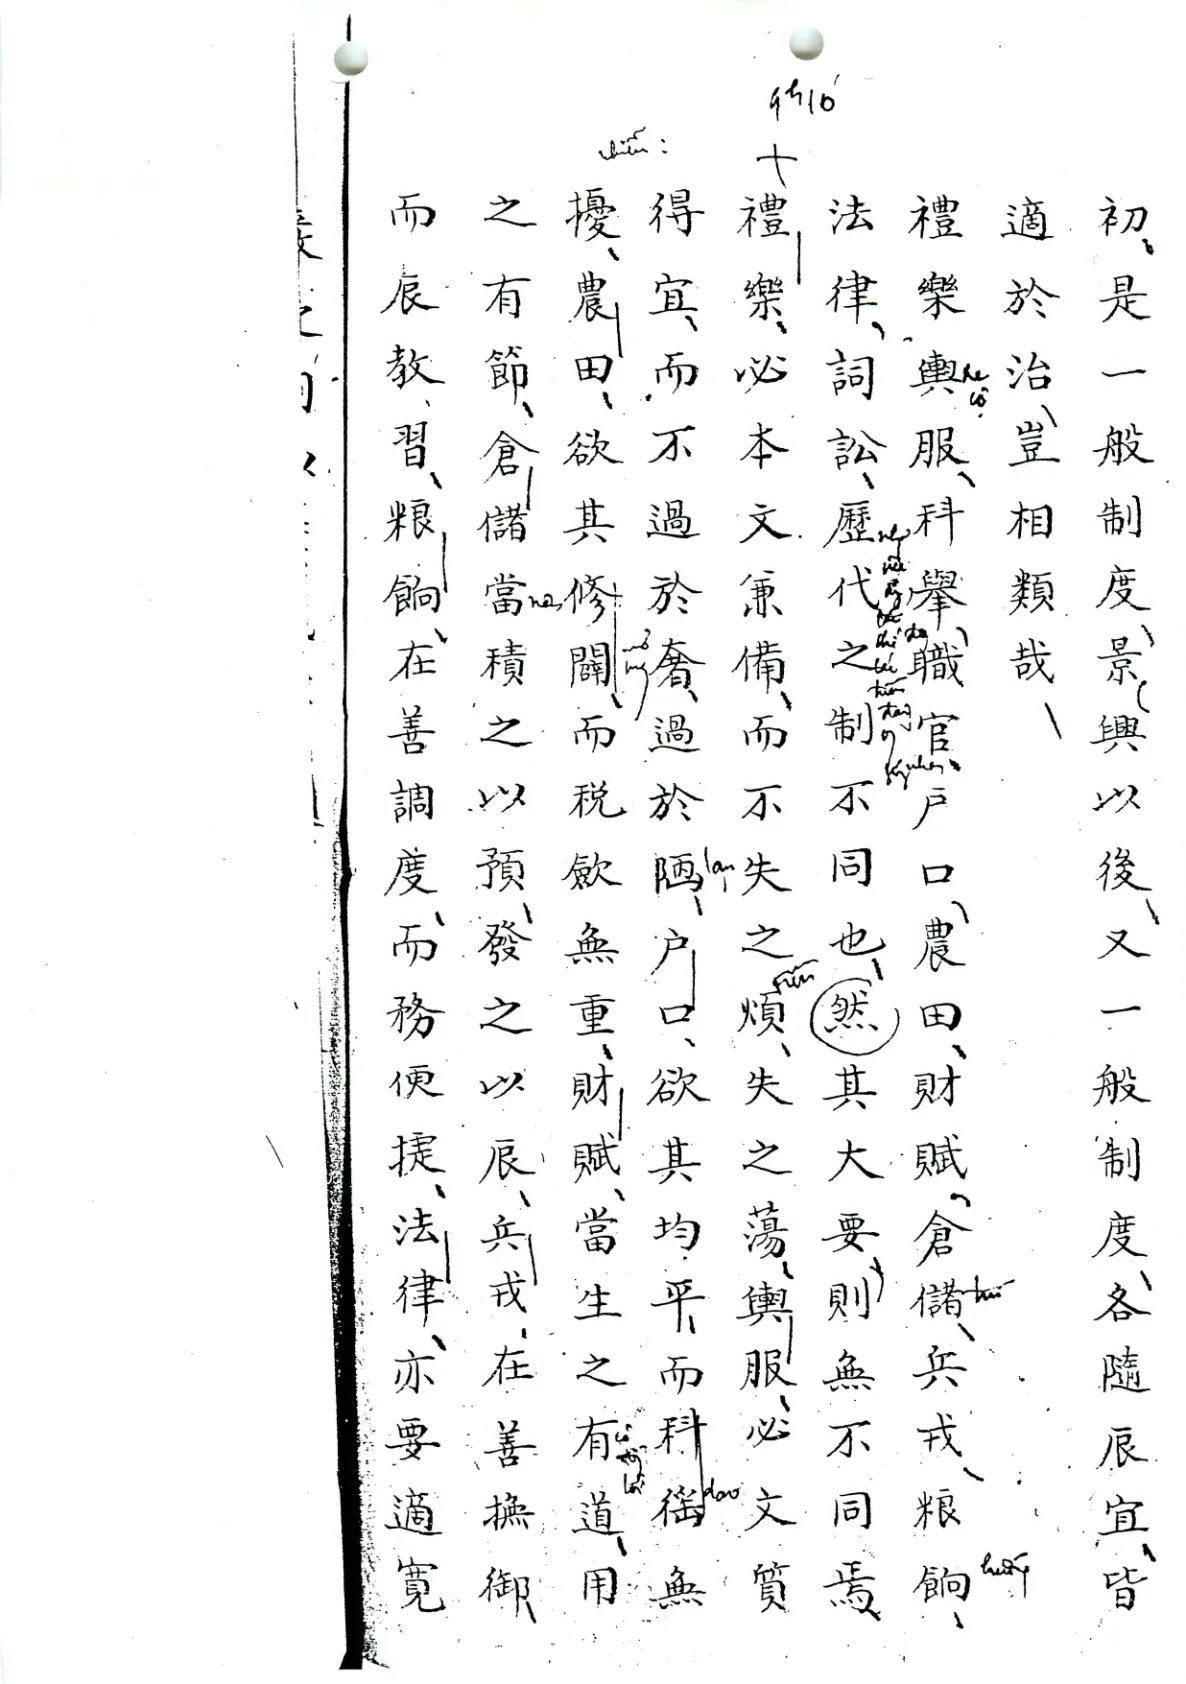 初是一般制度景興以後又一般制度各隨辰宜皆
適於治豈相類哉
禮樂輿服科舉職官戶口農田財賦倉儲兵戎粮餉
法律詞訟歷代之制不同也然其大要則無不同焉
十
禮樂必本文兼備而不失之煩失之蕩輿服必文質
得宜而不過於奢過於陋户口欲其均平而科徭無
擾農田欲其修闢而税歛無重財賦當生之有道用
之有節倉儲當積之以預發之以辰兵戎在善撫御
而辰教習粮餉在善調度而務便捷法律亦要適寬